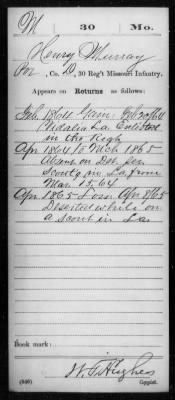 M 30 Mo.
Henry Murray
Co. D, 30 Reg't Missouri Infantry.
Appears on Returns as follows:
Feby 1864 Gain Feby
Vidalia La. Enlisted
in the Regt
Apr 1864 to Mch 1865
Absent on Det. Ser.
Scoutg in La. from
Mar 15, 64
Apr 1865 Loss Apr 8/65
Deserted while on
a scout in La.
Book mark:
(646) W. T. Hughes
Copyist.